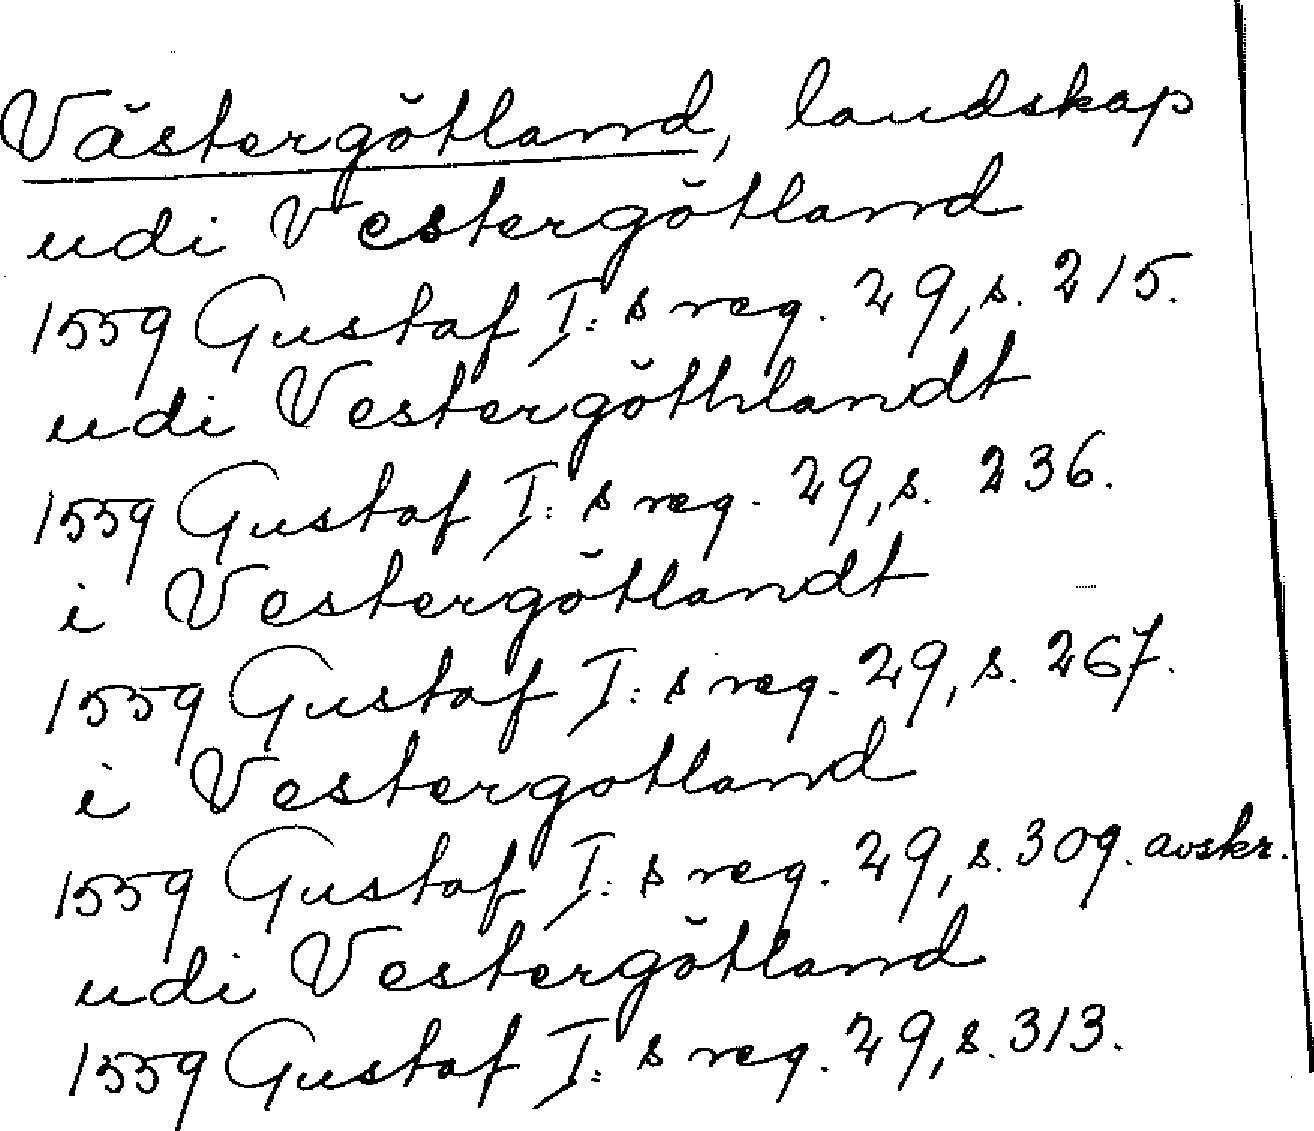 Västergötland, landskap
udi Vestergötland
1559 Gustaf I:s reg. 29, s. 215.
udi Vestergöthlandt
1559 Gustaf I:s reg. 29, s. 236.
i Vestergötlandt
1559 Gustaf I:s reg. 29, s. 267.
i Vestergotland
1559 Gustaf I:s reg. 29, s. 309. avskr.
udi Vestergötland
1559 Gustaf I:s reg. 29, s. 313.